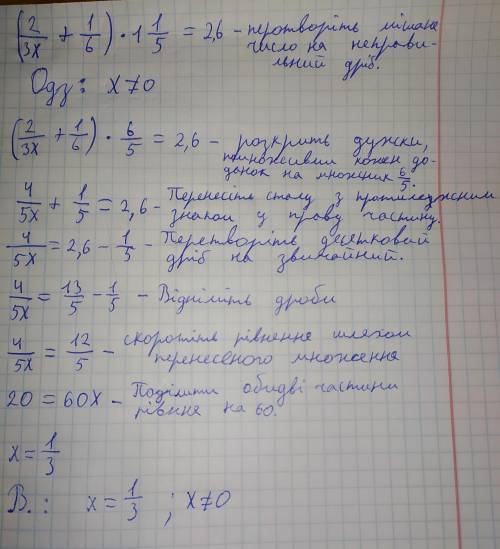 (2/3x + 1/6) · 1 1/5 = 2,6 - перетворіть мішане
число на неправи-
льний дріб.
Одз: x≠0
(2/3x + 1/6) · 6/5 = 2,6 - розкрить дужки,
помноживши кожен до-
данок на множник 6/5.
4/5x + 1/5 = 2,6 - Перенесіть сталу з протилежним
знаком у праву частину.
4/5x = 2,6 - 1/5 - Перетворіть десятковий
дріб на звичайний.
4/5x = 13/5 - 1/5 - Відніліть дроби
4/5x = 12/5 - скоротіть рівнення шляхом
перенесеного множення
20 = 60x - Поділити обидві частини
рівння на 60.
x = 1/3
В.: x = 1/3 ; x≠0